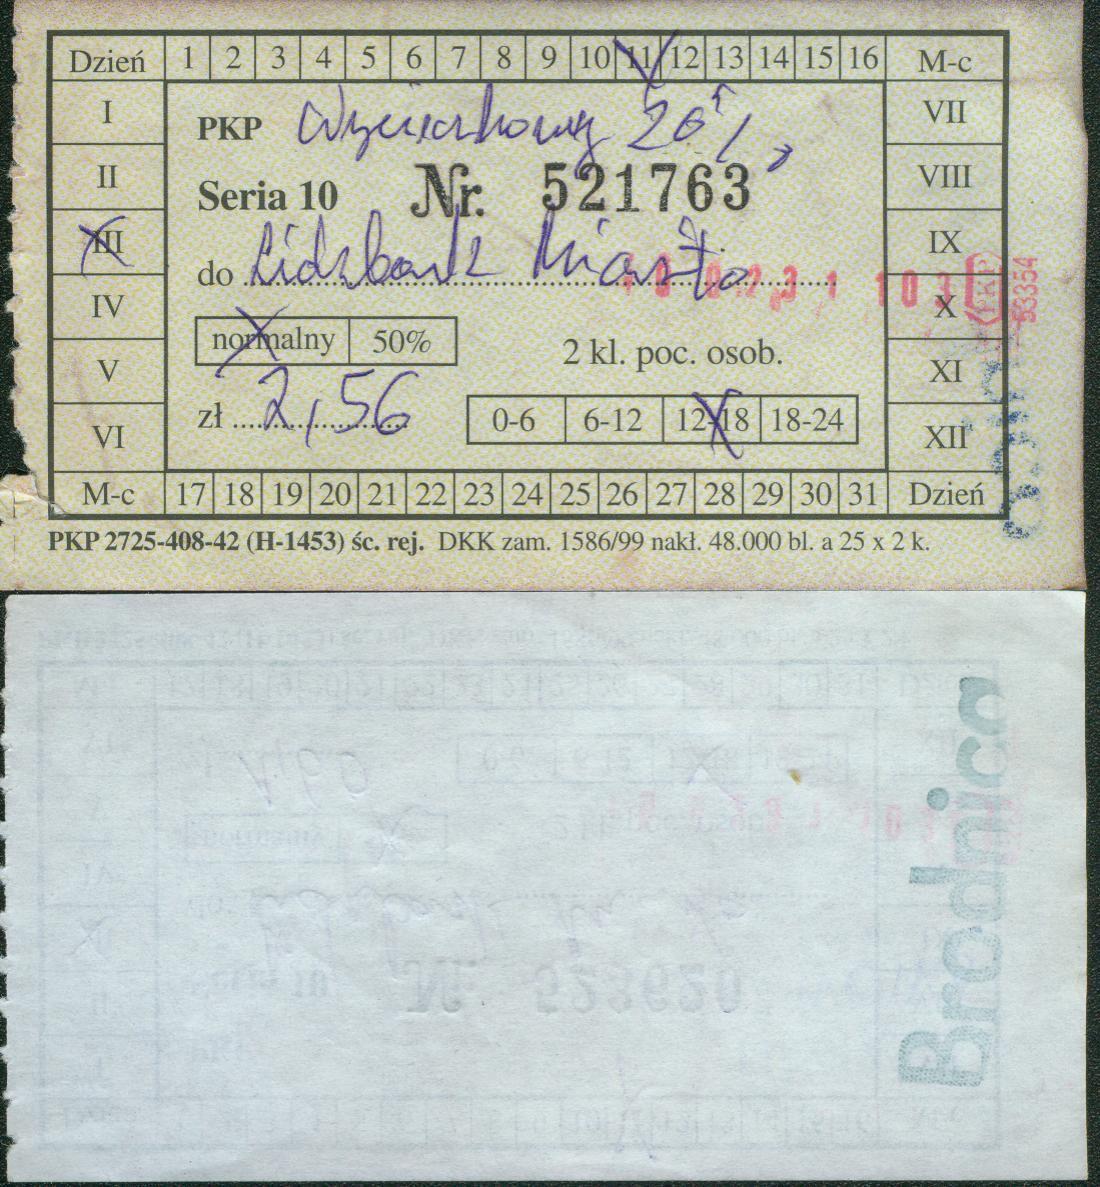 Dzień 1 2 3 4 5 6 7 8 9 10 11 12 13 14 15 16 M-c
I VII
PKP Wycieczkowy
II VIII
Seria 10 Nr. 521763
III IX
do Lidzbark Miasto
IV X
PKP
53354
normalny 50% 2 kl. poc. osob.
V XI
zł 2,56 0-6 6-12 12-18 18-24
VI XII
M-c 17 18 19 20 21 22 23 24 25 26 27 28 29 30 31 Dzień
PKP 2725-408-42 (H-1453) śc. rej. DKK zam. 1586/99 nakł. 48.000 bl. a 25 x 2 k.
Brodnica